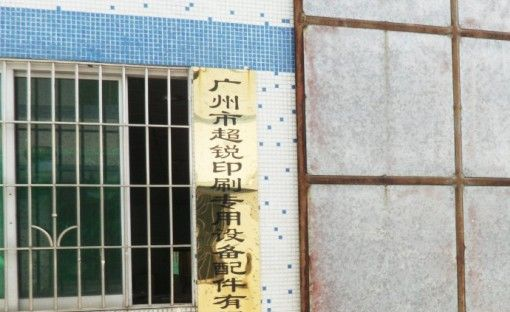 广州市超锐印刷专用设备配件有